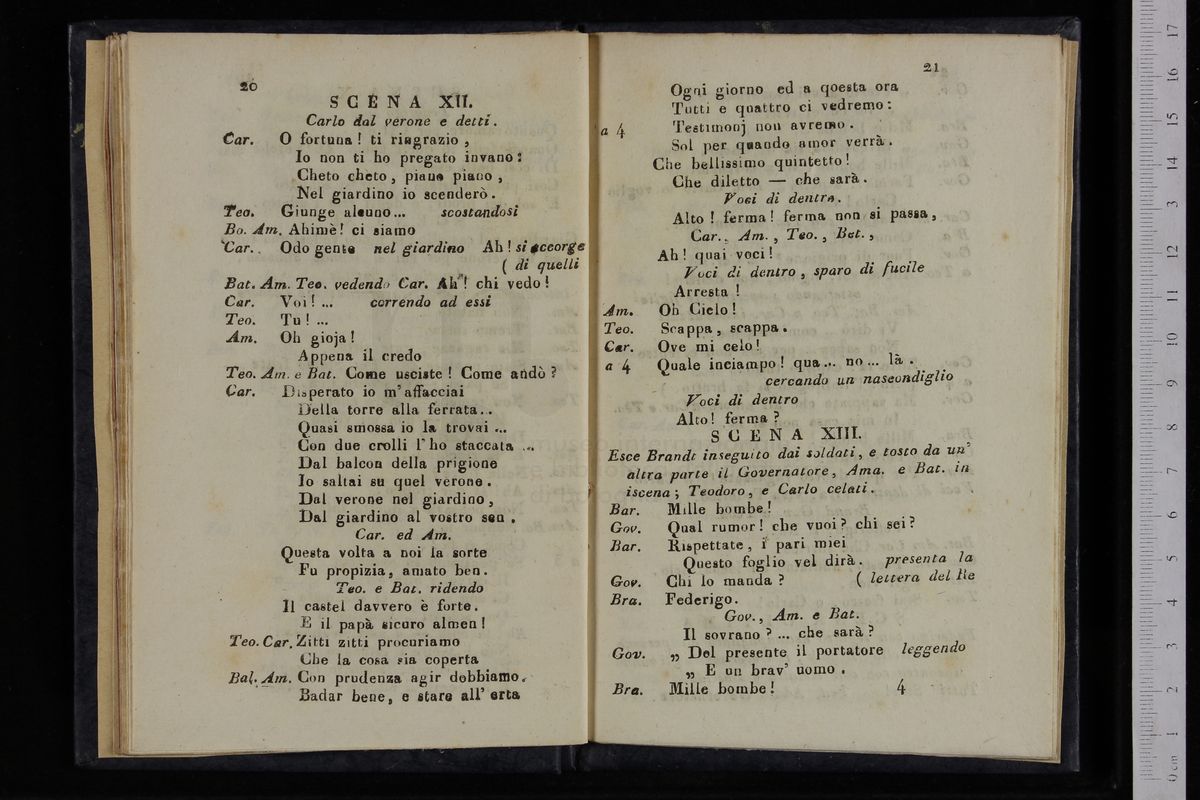 20
SCENA XII.
Carlo dal verone e detti.
Car. O fortuna ! ti ringrazio ,
Io non ti ho pregato invano :
Cheto cheto , piano piano ,
Nel giardino io scenderò .
Teo. Giunge alcuno... scostandosi
Bo. Am. Ahimè! ci siamo
Car. . Odo gente nel giardino Ah ! si accorge
( di quelli
Bat. Am. Teo. vedendo Car. Ah ! chi vedo !
Car. Voi ! ... correndo ad essi
Teo. Tu ! ...
Am. Oh gioja !
Appena il credo
Teo. Am. e Bat. Come usciste ! Come andò ?
Car. Disperato io m' affacciai
Della torre alla ferrata...
Quasi smossa io la trovai ...
Con due crolli l' ho staccata ...
Dal balcon della prigione
Io saltai su quel verone .
Dal verone nel giardino ,
Dal giardino al vostro sen .
Car. ed Am.
Questa volta a noi la sorte
Fu propizia , amato ben .
Teo. e Bat. ridendo
Il castel davvero è forte .
E il papà sicuro almen !
Teo. Car. Zitti zitti procuriamo
Che la cosa sia coperta
Bal. Am. Con prudenza agir dobbiamo .
Badar bene , e stare all' erta
21
Ogni giorno ed a qoesta ora
Tutti e quattro ci vedremo :
a 4 Testimonj non avremo .
Sol per quando amor verrà .
Che bellissimo quintetto !
Che diletto — che sarà .
Voci di dentro .
Alto ! ferma ! ferma non si passa ,
Car. , Am. , Teo. , Bat. ,
Ah ! quai voci !
Voci di dentro , sparo di fucile
Arresta !
Am. Oh Cielo !
Teo. Scappa , scappa .
Car. Ove mi celo !
a 4 Quale inciampo ! qua ... no ... là .
cercando un naseondiglio
Voci di dentro
Alto ! ferma ?
SCENA XIII.
Esce Brandt inseguito dai soldati , e tosto da un'
altra parte il Governatore , Ama. e Bat. in
iscena ; Teodoro , e Carlo celati .
Bar. Mille bombe !
Gov. Qual rumor ! che vuoi ? chi sei ?
Bar. Rispettate , i pari miei
Questo foglio vel dirà . presenta la
Gov. Chi lo manda ? ( lettera del Re
Bra. Federigo .
Gov. , Am. e Bat.
Il sovrano ? ... che sarà ?
Gov. „ Del presente il portatore leggendo
„ E un brav' uomo .
Bra. Mille bombe ! 4
0 cm 1 2 3 4 5 6 7 8 9 10 11 12 13 14 15 16 17